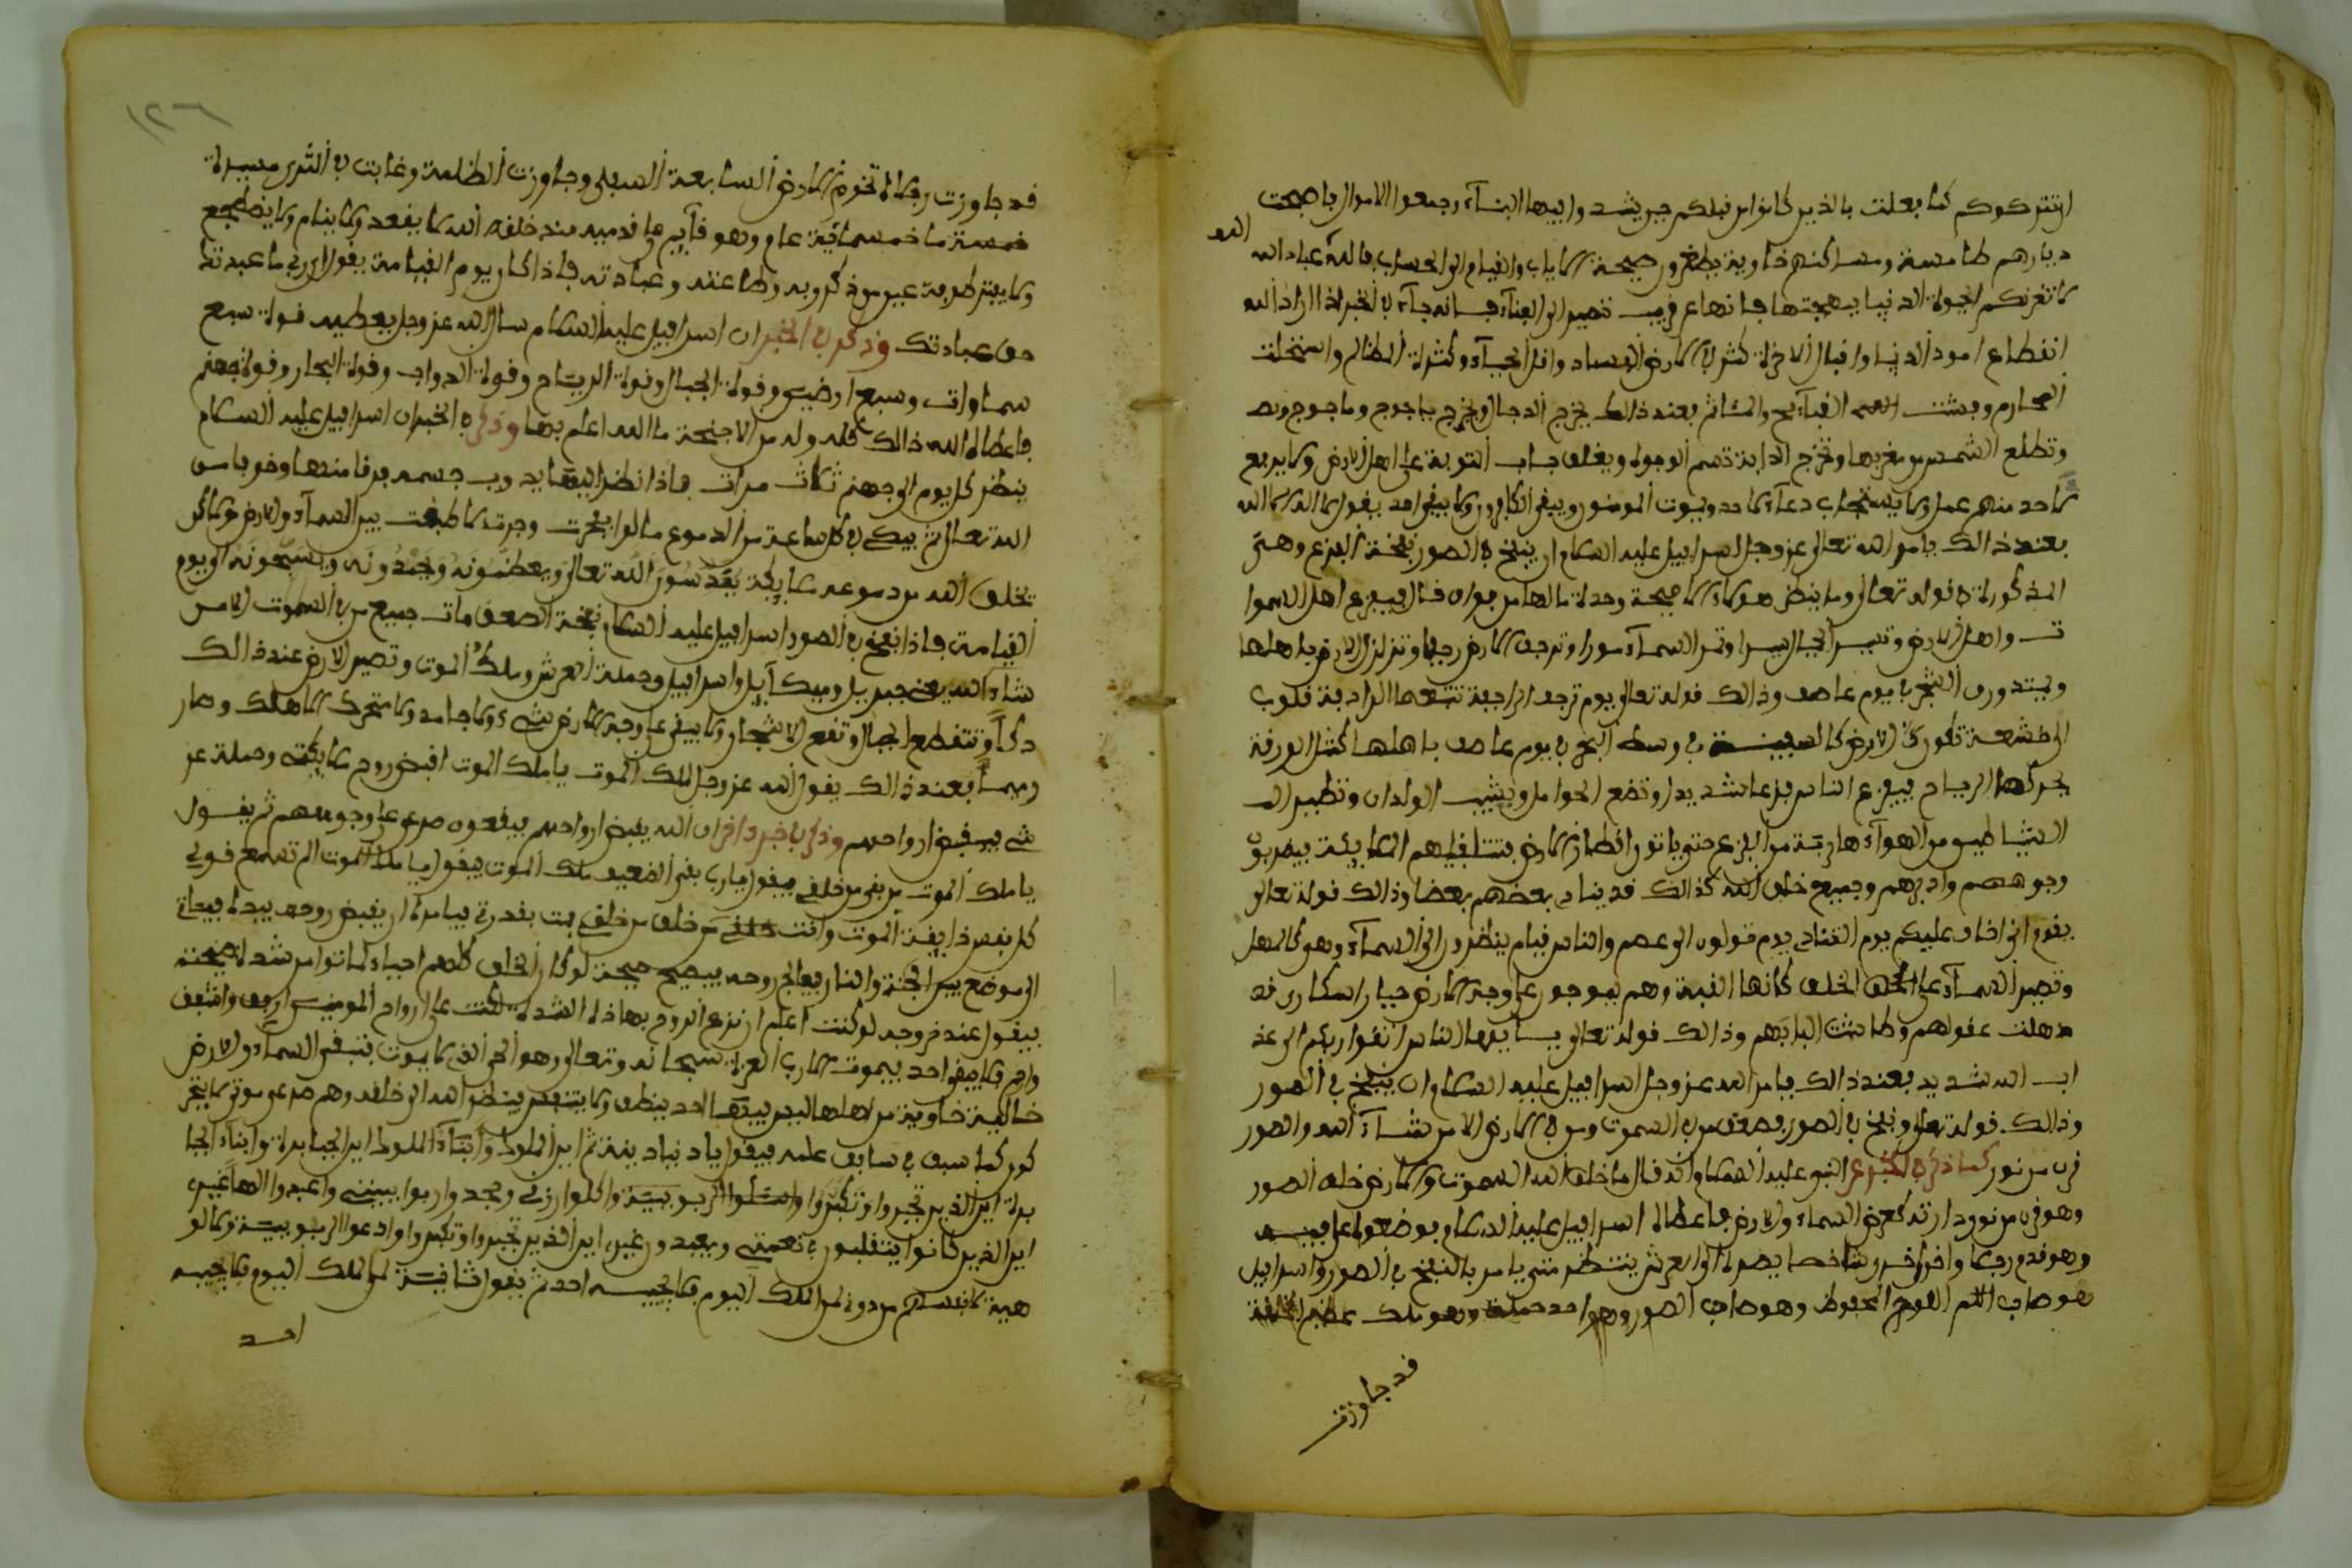 ديارهم طامسة ومساكنهم خاوية ينتظرون صيحة الاياب والقيام الى الحساب فالله الله عباد الله
لا تغرنكم الحيوة الدنيا ببهجتها فانها عن قريب تصير الى الفناء فانه جاء في الخبر اذا اراد الله
انقطاع امور الدنيا واقبال الاخرة كثر في الارض الفساد وقل الحياء وكثرة الظالم واستحلت
المحارم وفشت القبآئح والمئاثم فعند ذالك يخرج الدجال ويخرج ياجوج وماجوج
وتطلع الشمس من مغربها وتخرج الدابة تسم الوجوه ويغلق باب التوبة على اهل الارض ولا يرفع
لاحد منهم عمل ولا يستجاب دعآء لاحد ويموت المومنون ويبقى الكافرون ولا يبقى احد يقول لا اله الا الله
فعند ذالك يامر الله تعالى عز وجل اسرافيل عليه السلام ان ينفخ في الصور نفخة الفزع وهي
المذكورة في قوله تعالى وما ينظر هولاء الا صيحة وحدة ما لها من فواق فال فيفزع اهل السموا
ت واهل الارض وتسير الجبال سيرا وتمر السمآء مورا وترجف الارض رجفا وتزلزل الارض باهلها
في يوم عاصف وذالك قوله تعالى يوم ترجف الراجفة تتبعها الرادفة قلوب
الارض كالسفينة في وسط البحر في يوم عاصف باهلها كمثل الورقة
يحركها الرياح فيفزع الناس فزعا شديدا وتضع الحوامل ويشيب الولدان وتطير
الشياطين من الهوآء هاربة من الفزع حتى ياتون اقطار الارض فتتلقيهم الملايكة فيضربون
وجوههم وادبارهم وجميع خلق الله كذالك قد ينادي بعضهم بعضا وذالك قوله تعالى
يقوم انى اخاف عليكم يوم التناد يوم تولون الى والناس قيام ينظرون الى السمآء وهى كالمهل
وتصير السمآء على الخلق كانها القبة وهم يموجون على وجه الارض حيارا سكارى قد
ذهلت عقولهم وطاشت البابهم وذالك قوله تعالى يا أيها الناس اتقوا ربكم الى عذ
اب الله شديد فعند ذالك يامر الله عز وجل اسرافيل عليه السلام ان ينفخ في الصور
وذالك قوله تعالى ونفخ في الصور فصعق من في السموت ومن في الارض الا من شآء الله والصور
قرن من نور كما ذكر في الخبر عن النبى عليه السلام انه قال ما خلق الله السموت والارض خلق الصور
وهو قرن من نور دارته كعرض السماء والارض فاعطاه اسرافيل عليه السلام فوضعه على فيه
وهو قدم رجلا واخر اخرى شاخصا بصره الى العرش ينتظر متى يامر بالنفخ في الصور واسرافيل
هو صاحب اللوح المحفوظ وهو صاحب الصور وهو احد حملة وهو ملك عظيم الخلقة
قد جاوزت
١٢٦
قد جاوزت رجلاه تخوم الارض السابعة السفلى وجاوزت الظلمة وغابت في الثرى مسيرة
خمسة ما خمسمائة عام وهو قآيم على قدميه منذ خلقه الله لا يقعد ولا ينام ولا يضطجع
ولا يفتر طرفة عين من ذكر ربه وطاعته وعبادته فاذا كان يوم القيامة يقول ربي ما عبدتك
حق عبادتك وذكر في الخبر ان اسرافيل عليه السلام سال الله عز وجل يعطيه قوة سبع
سماوات وسبع ارضين وقوة الجبال وقوة الرياح وقوة الدواب وقوة البحار وقوة جهنم
فاعطاه الله ذالك كله وله من الاجنحة ما الله اعلم بها وذكر في الخبر ان اسرافيل عليه السلام
ينظر كل يوم الى جهنم ثلاث مرات فاذا نظر اليها يذوب جسمه فرقا منها وخوفا من
الله تعالى ثم يبكي في كل ساعة من الدموع ما لو انفجرت وجرت لاطبقت بين السمآء والارض ولاكن
يخلق الله من دموعه ملايكة يقدسون الله تعالى ويعظمونه ويمجدونه ويسبحونه الى يوم
القيامة فاذا نفخ في الصور اسرافيل عليه السلام نفخة الصعق مات جميع من في السموت الا من
شاء الله يعنى جبريل وميكآيل واسرافيل وحملة العرش وملك الموت وتصير الارض عند ذالك
دكا وتتقطع الجبال وتقع الاشجار ولا يبقى على وجه الارض شيء ولا جامد ولا متحرك الا هلك وصار
رميما فعند ذالك يقول الله عز وجل لملك الموت يا ملك الموت اقبض روح ملايكتي وحملة عر
شي فيقبض ارواحهم وذكر في خبر اخر ان الله يقبض ارواحهم فيقعون صرعى على وجوههم ثم يقول
يا ملك الموت من بقى من خلقي فيقول يارب بقى الضعيف ملك الموت فيقول يا ملك الموت الم تسمع قولي
كل نفس ذايقة الموت وانت من خلق من خلقي مت بقدرتي فيامره ان يقبض روحه بيده فيبات
الى موضع بين الجنة والنار فيعالج روحه فيصيح صيحة لو كان الخلق كلهم احياء لماتوا من شدة صيحته
فيقول عند خروجه لو كنت اعلم ان نزع الروح بهاذه الشدة لكنت على ارواح المومنين ارفق واشفق
وارحم فلا يبقى احد فيموت الا رب العزة سبحانه وتعالى وهو الحى الذي لا يموت فتبقى السمآء والارض
خالية خاوية من اهلها ليس فيها احد ينطق ولا يتنفس فينظر الله الى خلقه وهم صرعى موتى لا يتحر
كون كما سبق في سابق علمه فيقول يا دنيا دنية ثم اين الملوك وأبنآء الملوك اين الجبابرة وابناء الجبا
برة اين الذين تجبروا وتكبروا الربوبية واكلوا رزقي وجحدوا ربوبيتي وعبدوا الها غيري
اين الذين كانوا يتقلبون في نعمتي ويعبدون غيري اين الذين تجبروا وتكبروا وادعوا الربوبية
لانفسهم من دوني لمن الملك اليوم فلا يجيبه احد ثم يقول ثانية لمن الملك اليوم فلا يجيبه
احد